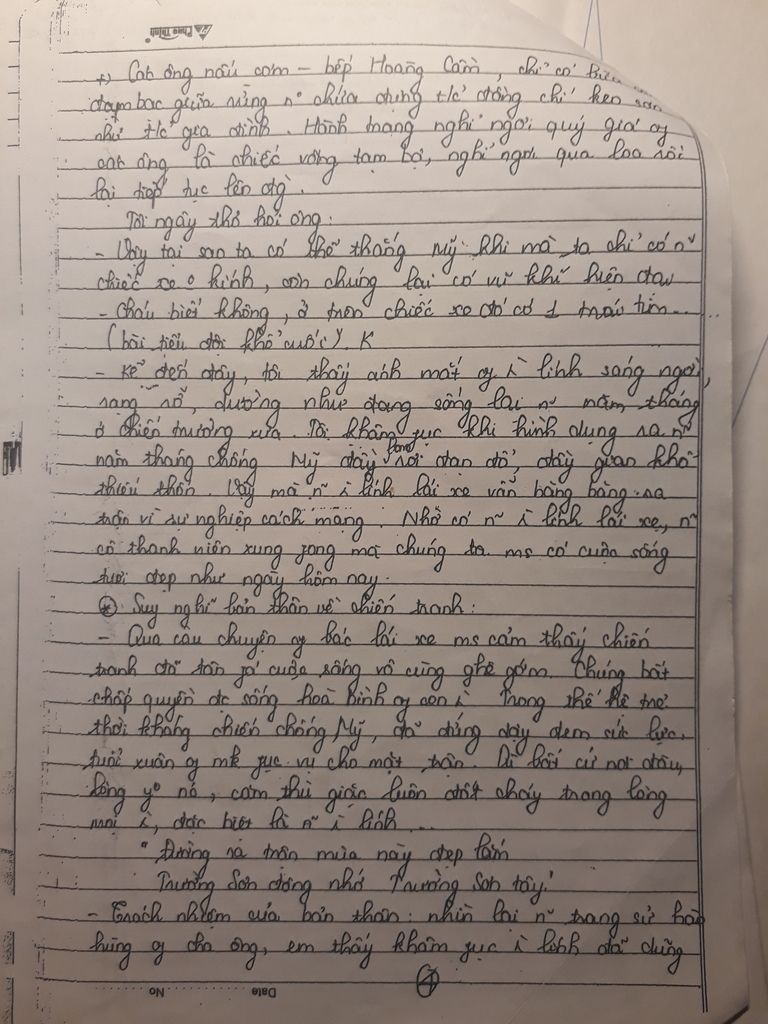 +) Các ông nấu cơm – bếp Hoàng Cầm, chỉ có bữa
đạm bạc giữa rừng n° chứa đựng t/c đồng chí keo sơn
như t/c gia đình. Hành trang nghỉ ngơi quý giá of
các ông là chiếc võng tạm bợ, nghỉ ngơi qua loa rồi
lại tiếp tục lên đg.
Tôi ngây thơ hỏi ông:
- Vậy tại sao ta có thể thắng Mỹ khi mà ta chỉ có n~
chiếc xe o kính, còn chúng lại có vũ khí hiện đại
- Cháu biết không, ở trên chiếc xe đó có 1 trái tim...
(bài tiểu đội khổ cuối) K
- Kể đến đây, tôi thấy ánh mắt of i lính sáng ngời,
rạng rỡ, dường như đang sống lại n~ năm tháng
ở chiến trường xưa. Tôi khâm fục khi hình dung ra n~
năm tháng chống Mỹ đầy bom rơi đạn đổ, đầy gian khổ
thiếu thốn. Vậy mà n~ i lính lái xe vẫn băng băng ra
trận vì sự nghiệp cách mạng. Nhờ có n~ i lính lái xe, n~
cô thanh niên xung fong mà chúng ta ms có cuộc sống
tươi đẹp như ngày hôm nay.
⊛ Suy nghĩ bản thân về chiến tranh:
- Qua câu chuyện of bác lái xe ms cảm thấy chiến
tranh đã tàn fá cuộc sống vô cùng ghê gớm. Chúng bất
chấp quyền đc sống hoà bình of con i. Trong thế hệ trẻ
thời kháng chiến chống Mỹ, đã đứng dậy đem sức lực,
tuổi xuân of mk fục vụ cho mặt trận. Dì bất cứ nơi đâu,
lòng y° nc, căm thù giặc luôn đốt cháy trong lòng
mọi i, đặc biệt là n~ i lính...
" Đường ra trận mùa này đẹp lắm
Trường Sơn đông nhớ Trường Sơn tây."
- Trách nhiệm của bản thân: nhìn lại n~ trang sử hào
hùng of cha ông, em thấy khâm fục i lính đã dũng
No Date